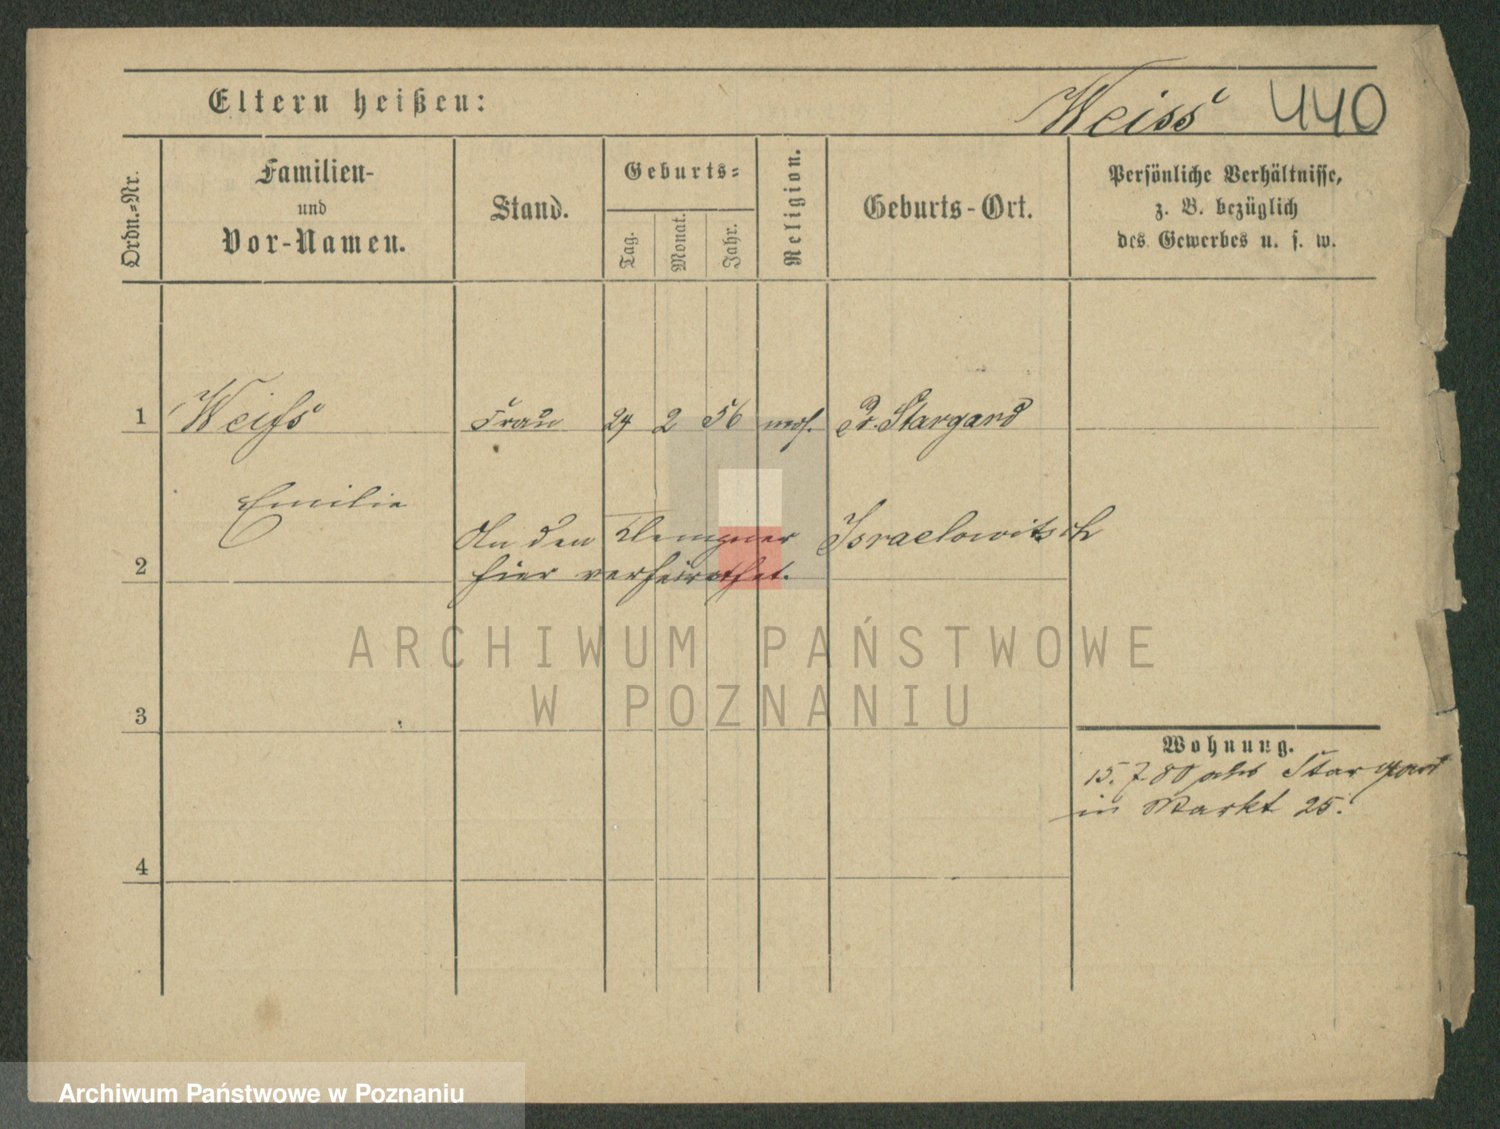 Eltern heißen:
Weiss 440
Ordn.-Nr.
Familien-
und
Vor-Namen.
Stand.
Geburts-
Tag.
Monat.
Jahr.
Religion.
Geburts-Ort.
Persönliche Verhältnisse,
z. B. bezüglich
des Gewerbes u. s. w.
1 Weiss Frau 24 2 56 mos. Pr. Stargard
Emilie
An den Klempner Israelowitsch
2 hier verheirathet.
ARCHIWUM PAŃSTWOWE
W POZNANIU
3
Wohnung.
15. 7. 80 Stargard
in Markt 25.
4
Archiwum Państwowe w Poznaniu